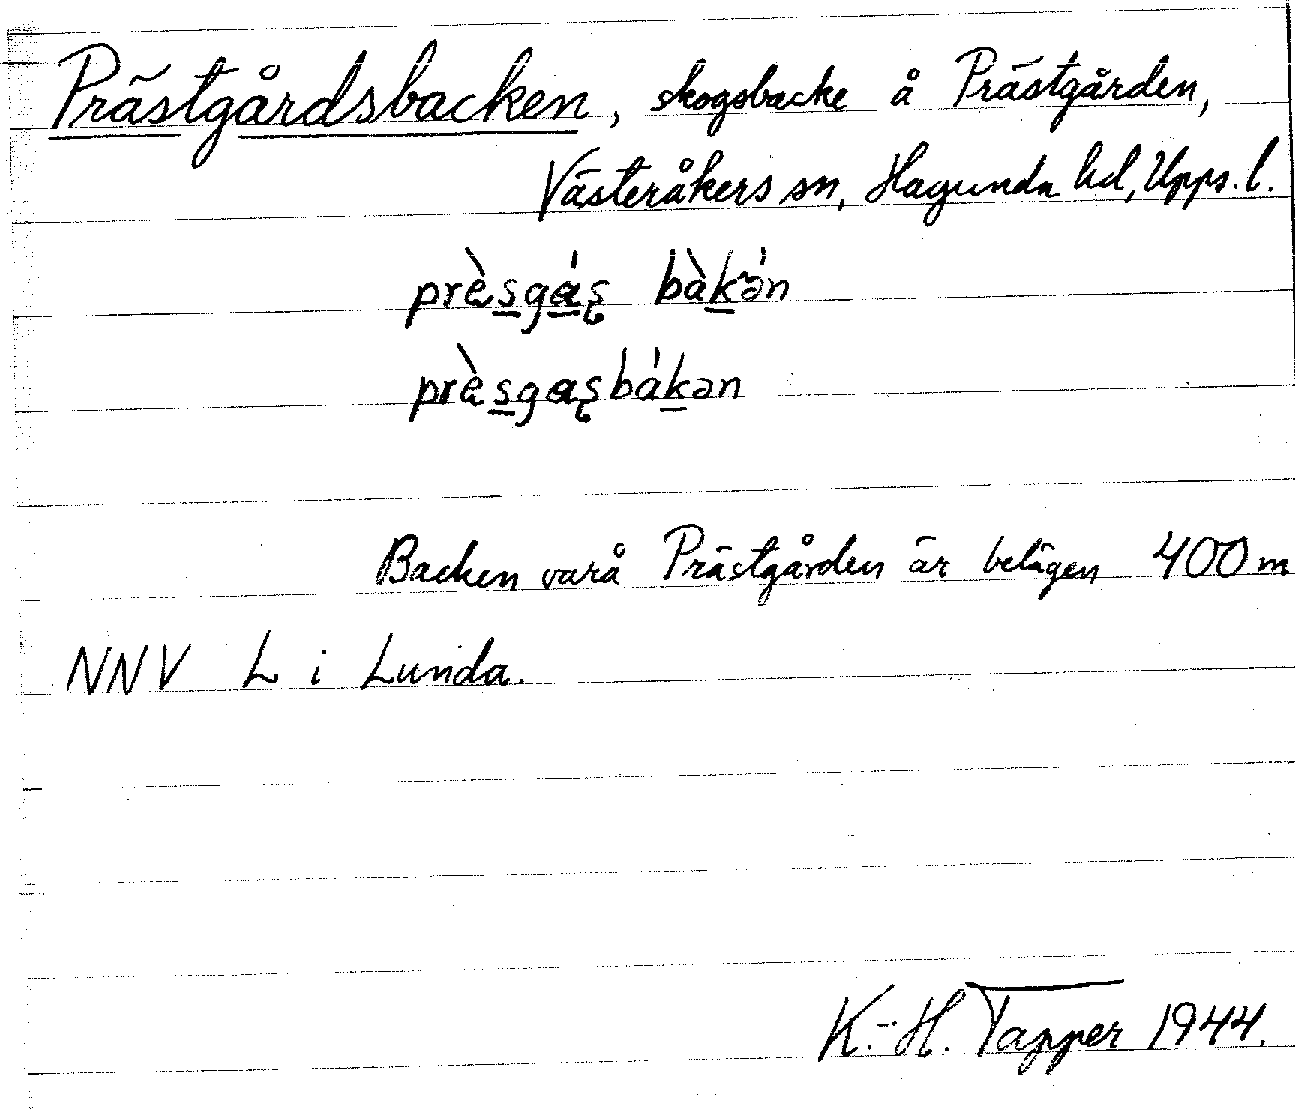 Prästgårdsbacken, skogsbacke å Prästgården,
Västeråkers sn, Hagunda hd, Upps. l.
prèsgáʂ bàkə́n
prèsgaʂbákən
Backen varå Prästgården är belägen 400 m
NNV L i Lunda.
K.-H. Tapper 1944.